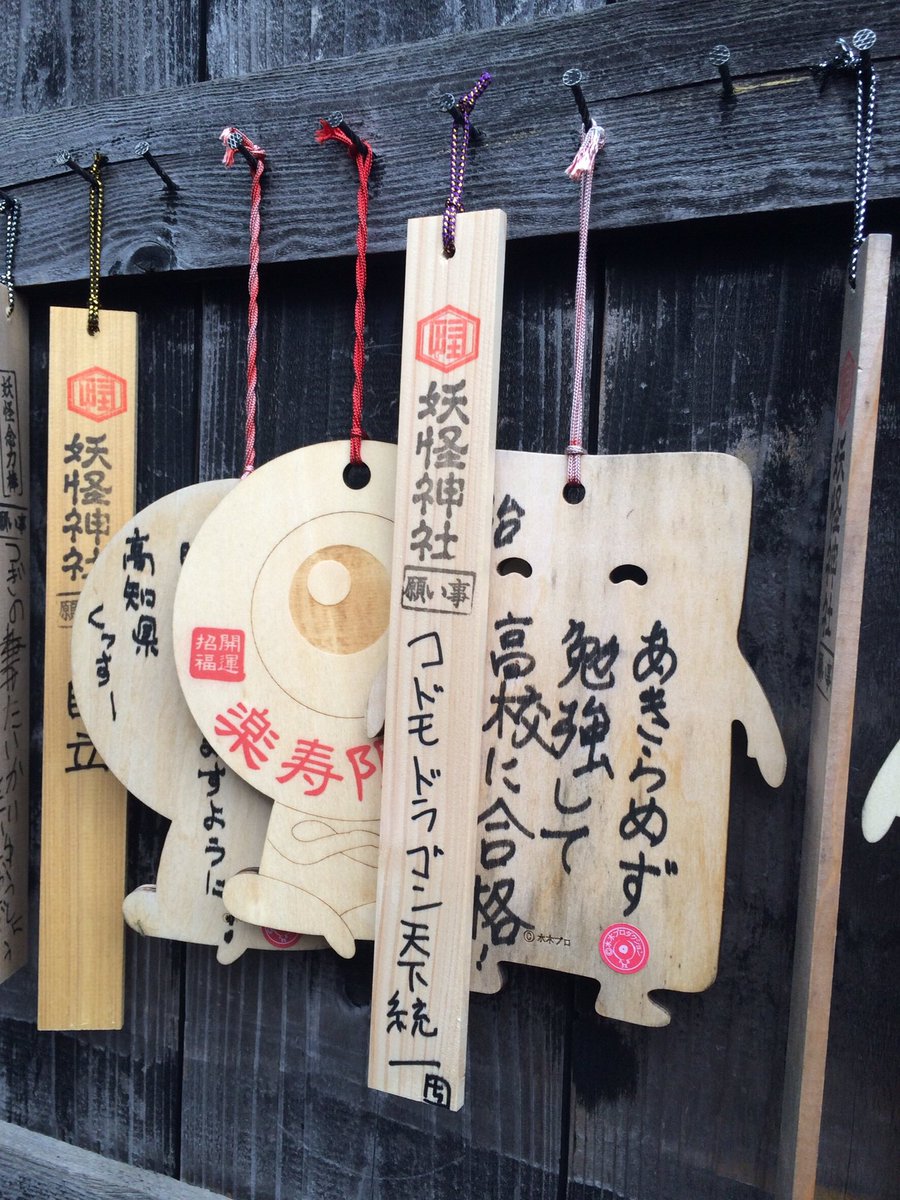 妖怪神社
願い事
コドモドラゴン天下統一
あきらめず
勉強して
高校に合格!
©水木プロ
©水木プロダクション
開運
招福
楽寿
高知県
くっすー
ますように
妖怪神社
願
自立
妖怪念力棒
願い事
つぎの
妖怪神社